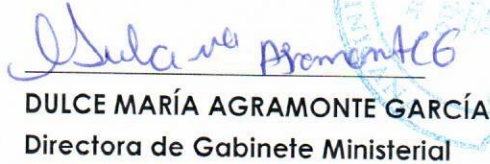 Dulce Ma Agramonte G
DULCE MARÍA AGRAMONTE GARCÍA
Directora de Gabinete Ministerial